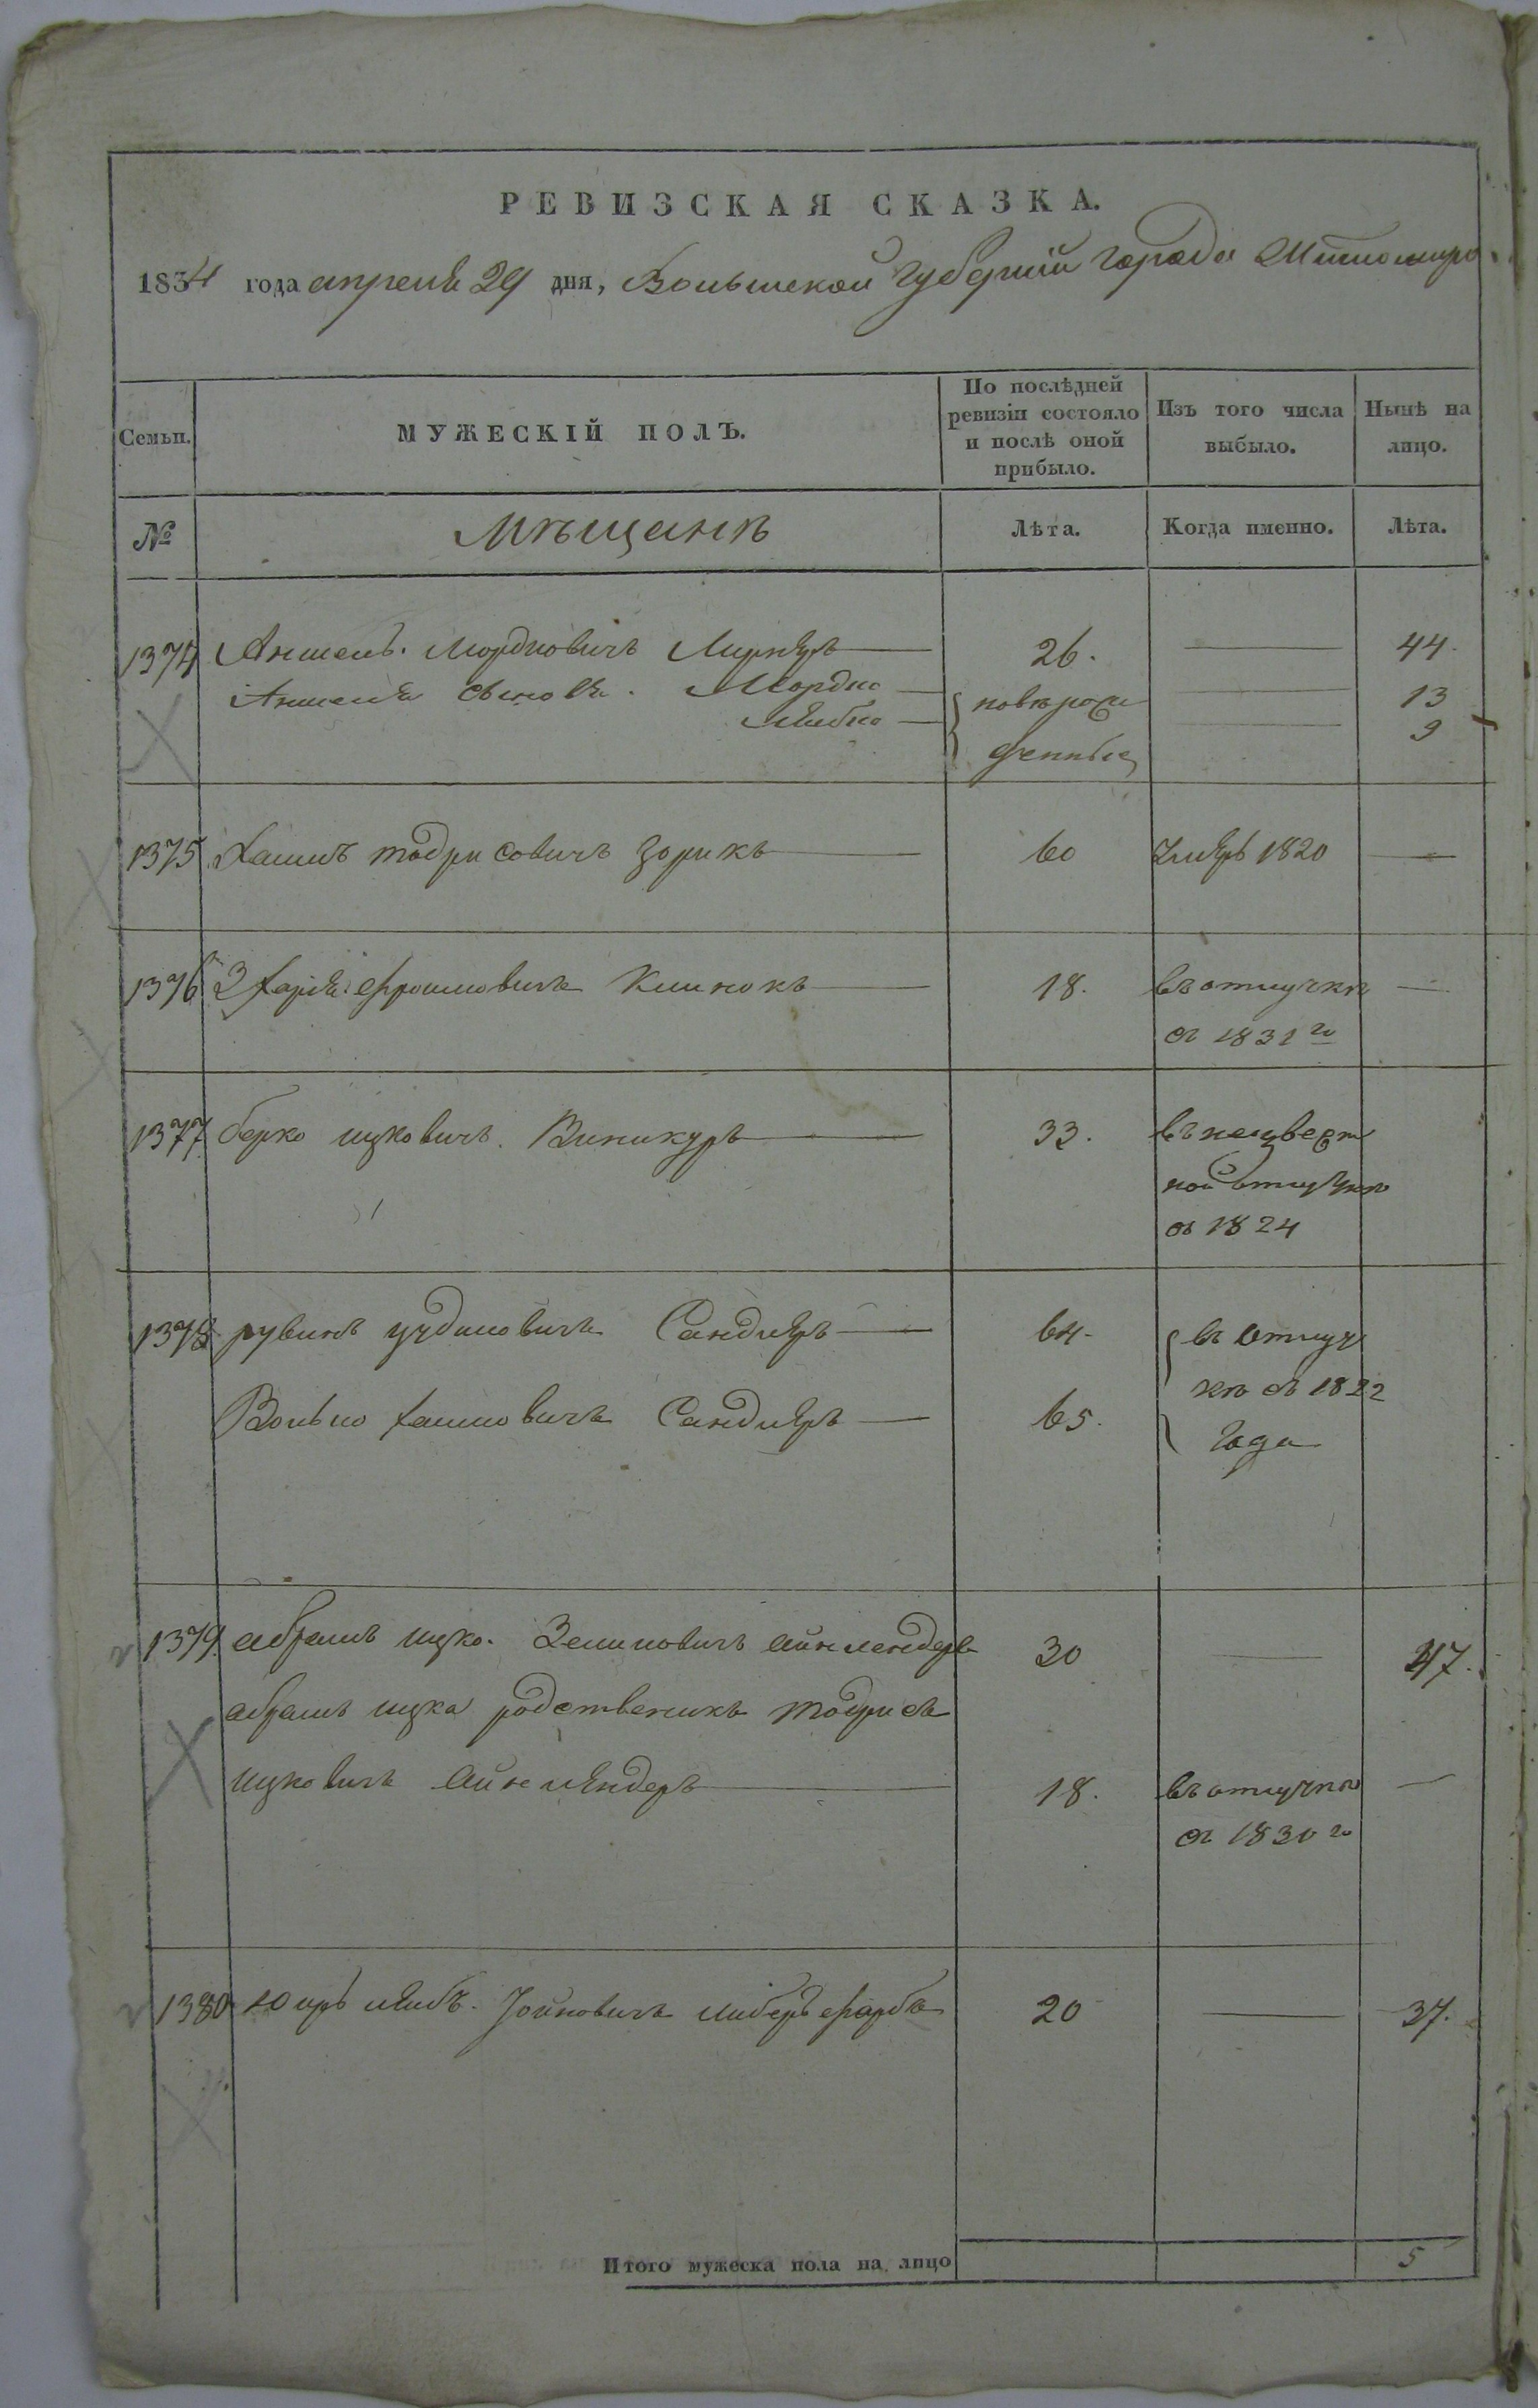 РЕВИЗСКАЯ СКАЗКА.
1834 года апреля 29 дня, Волынской Губерніи города Житомира
Семьи. МУЖЕСКІЙ ПОЛЪ. По послѣдней ревизіи состояло и послѣ оной прибыло. Изъ того числа выбыло. Нынѣ на лицо.
№ Мѣщанѣ Лѣта. Когда именно. Лѣта.
1374 Аншель Мордковичъ Лирнѣръ 26. 44.
Аншеля сыновя Мордко новорож 13
Лейбко денныя 9
1375 Хаимъ тодрисовичъ Зорикъ 60 умѣръ 1820
1376 Зхарія Фроимовичъ Клинокъ 18. въ отлучкѣ
съ 1831го
1377 берко ицковичъ Виникуръ 33. въ неизвест
ной отлучкѣ
съ 1824
1378 рувинъ Сандлѣръ 64. въ отлуч
кѣ съ 1822
Волько хаимовичъ Сандлѣръ 65. года
1379 абрамъ ицко Зеликовичъ айнлендеръ 30 47.
абрамъ ицка родственикъ тодрисъ
ицковичъ айнлѣндеръ 18. въ отлучкѣ
съ 1830го
1380 лѣйбъ Іойновичъ либерфарбъ 20 37.
Итого мужеска пола на лицо 5